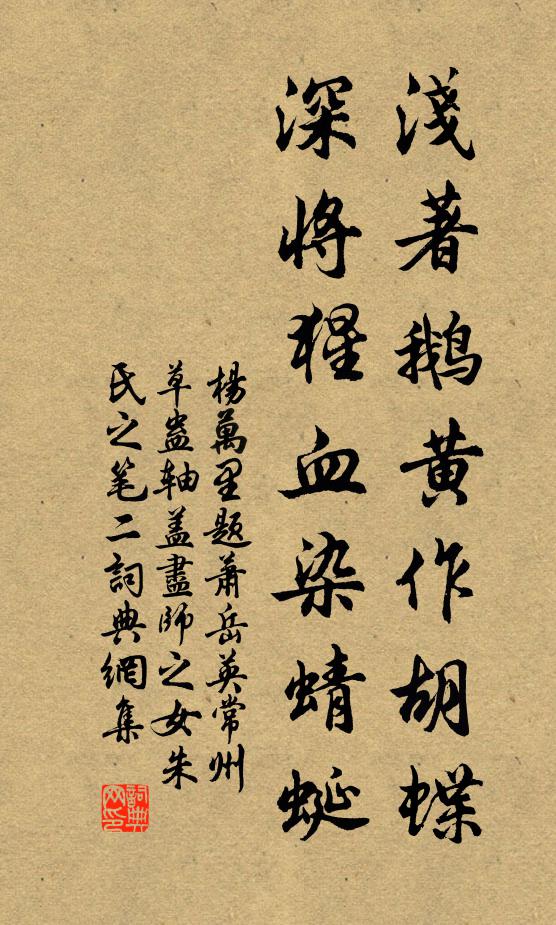 淺著鵝黃作胡蝶
深將猩血染蜻蜒
楊萬里題蕭岳英常州
草蟲轴盖畫師之女朱
氏之笔二詞典網集
詞典網印